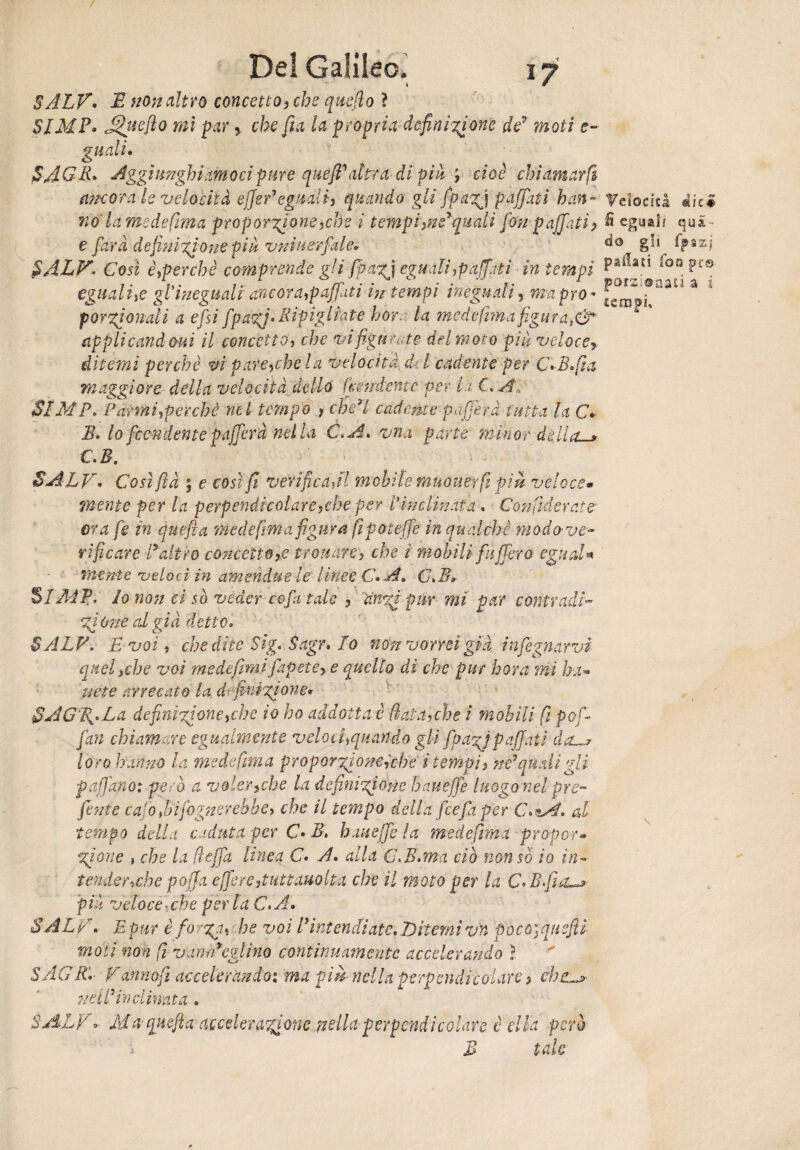 Del Galileo. 17
SALV. E non altro concetto, che questo ?
SIMP. Questo mi par, che sia la propria definizione de' moti e-
guali.
SAGR. Aggiunghiamoci pure quest'altra di più ; cioè chiamarsi
ancora le velocità esser'eguali, quando gli spazj passati han-
no la medesima proporzione, che i tempi, ne'quali son passati,
e sarà definizione più vniuersale.
Velocità dicō
si eguali quā-
do gli spazj
passati son pro
porzionati a i
tempi.
SALV. Così è, perchè comprende gli spazj eguali, passati in tempi
eguali, e gl'ineguali ancora, passati in tempi ineguali, ma pro-
porzionali a essi spazj. Ripigliate hora la medesima figura, &
applicandoui il concetto, che vi figurate del moto più veloce,
ditemi perchè vi pare, che la velocità del cadente per C.B. sia
maggiore della velocità dello scendente per la C. A.
SIMP. Parmi, perchè nel tempo, che'l cadente passerà tutta la C.
B. lo scendente passerà nella C.A. vna parte minor della
C.B.
SALV. Così stà ; e così si verifica, il mobile muouersi più veloce-
mente per la perpendicolare, che per l'inclinata. Considerate
ora se in questa medesima figura si potesse in qualchè modo ve-
rificare l'altro concetto, e trouare, che i mobili fussero egual-
mente veloci in amendue le linee C. A. C.B.
SIMP. Io non ci sò veder cosa tale, anzi pur mi par contradi-
zione al già detto.
SALV. E voi, che dite Sig. Sagr. Io non vorrei già insegnarvi
quel, che voi medesimi sapete, e quello di che pur hora mi ha-
uete arrecato la definizione.
SAGR. La definizione, che io ho addotta è stata, che i mobili si pos-
san chiamare egualmente veloci, quando gli spazj passati da
loro hanno la medesima proporzione, che i tempi, ne'quali gli
passano: però a voler, che la definizione hauesse luogo nel pre-
sente caso, bisognerebbe, che il tempo della scesa per C.A. al
tempo della caduta per C. B. hauesse la medesima propor-
zione, che la stessa linea C. A. alla C.B. ma ciò non sò io in-
tender, che possa essere, tuttauolta che il moto per la C. B. sia
più veloce, che per la C. A.
SALV. E pur è forza, che voi l'intendiate. Ditemi vn poco; questi
moti non si vann'eglino continuamente accelerando ?
SAGR. Vannosi accelerando; ma più nella perpendicolare, che
nell'inclinata.
SALV. Ma questa accelerazione nella perpendicolare è ella però
B tale